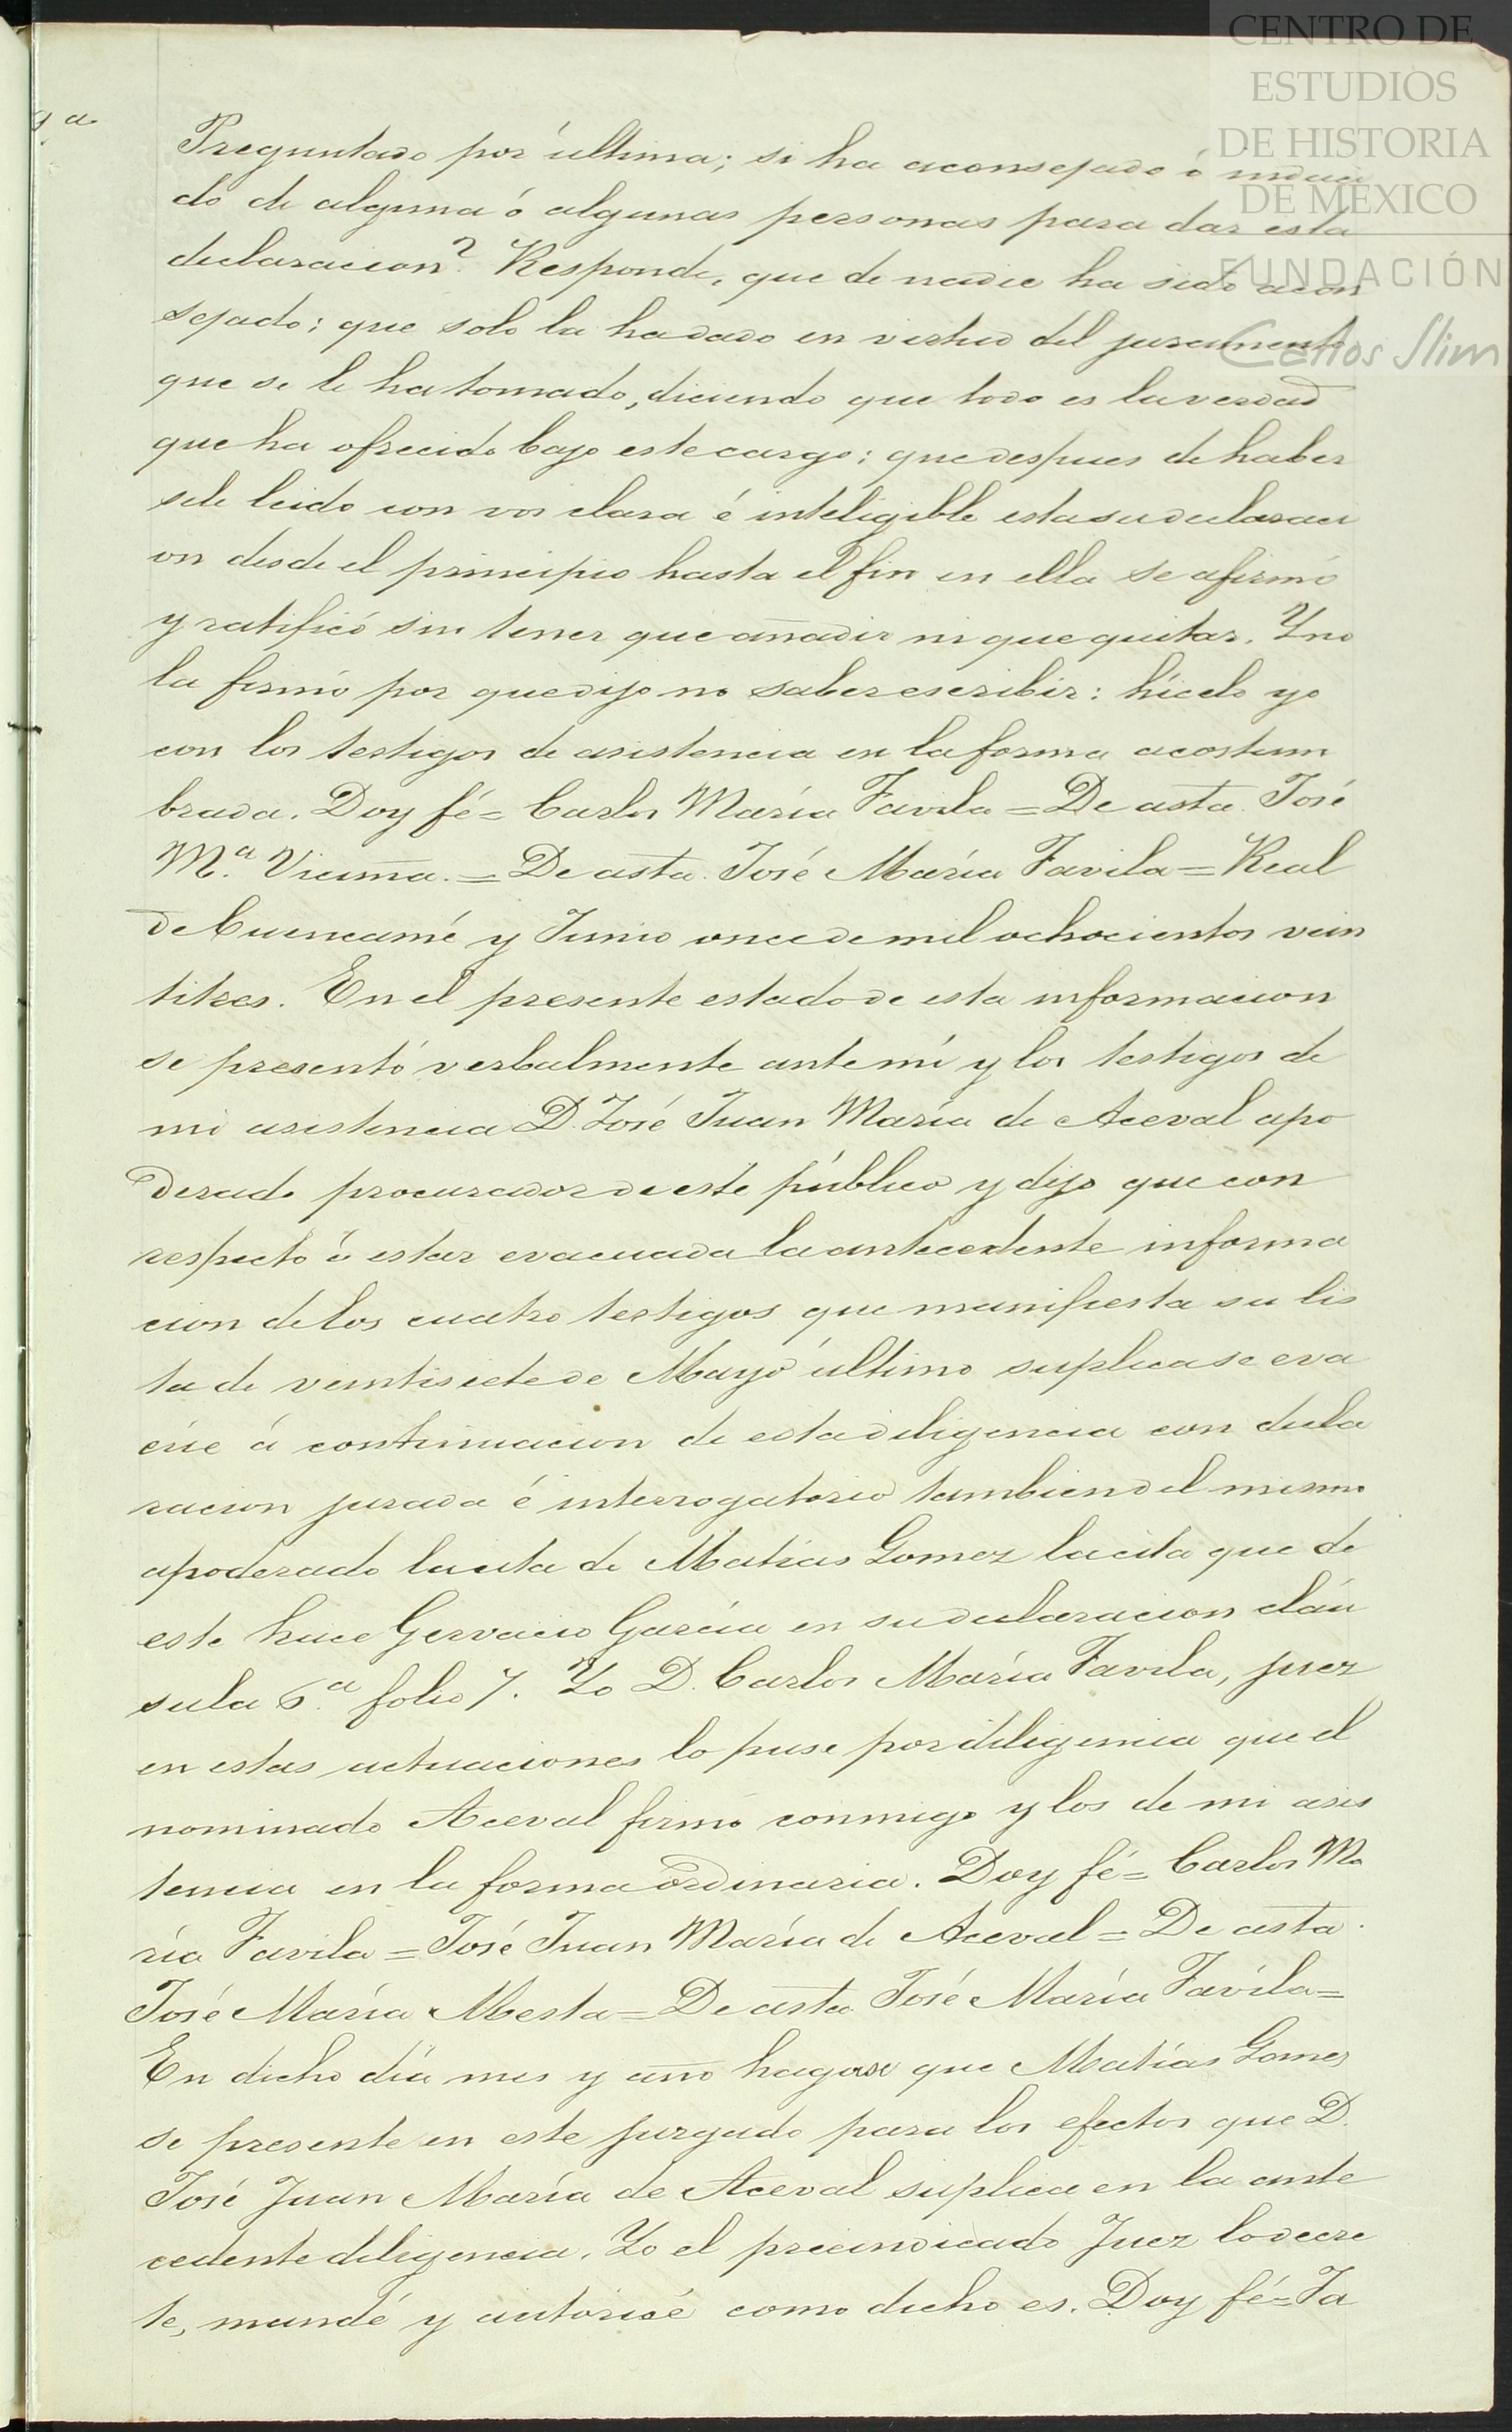 CENTRO DE
ESTUDIOS
DE HISTORIA
DE MÉXICO
FUNDACIÓN
Carlos Slim
9ª
Preguntado por última; si ha aconsejado ó induci
do de alguna ó algunas personas para dar esta
declaracion? Responde, que de nadie ha sido acon
sejado; que solo la ha dado en virtud del juramento
que se le ha tomado, diciendo que todo es la verdad
que ha ofrecido bajo este cargo; que despues de haber
sele leido con vos clara é inteligible esta su declaraci
on desde el principio hasta el fin en ella se afirmó
y ratificó sin tener que añadir ni que quitar. Y no
la firmó por que dijo no saber escribir: hícelo yo
con los testigos de asistencia en la forma acostum
brada. Doy fé= Carlos María Favila = De asta. José
Mª. Vicuña. = De asta. José María Favila = Real
de Cuencamé y Junio once de mil ochocientos vein
titres. En el presente estado de esta informacion
se presentó verbalmente ante mí y los testigos de
mi asistencia D. José Juan María de Aceval apo
derado procurador de este público y dijo que con
respecto á estar evacuada la antecedente informa
cion de los cuatro testigos que manifiesta su lis
ta de veintisiete de Mayo último suplica se eva
cúe á continuacion de esta diligencia con decla
racion jurada é interrogatorio tambien del mismo
apoderado la cita de Matías Gomez la cita que de
este hace Gervacio García en su declaracion cláu
sula 6ª. folio 7. Yo D. Carlos María Favila, juez
en estas actuaciones lo puse por diligencia que el
nominado Aceval firmó conmigo y los de mi asis
tencia en la forma ordinaria. Doy fé= Carlos Ma
ría Favila = José Juan María de Aceval = De asta.
José María Mesta = De asta José María Favila =
En dicho día mes y año hágase que Matías Gomez
se presente en este juzgado para los efectos que D.
José Juan María de Aceval suplica en la ante
cedente diligencia. Yo el preindicado Juez lo decre
te, mandé y autorisé como dicho es. Doy fé= Fa